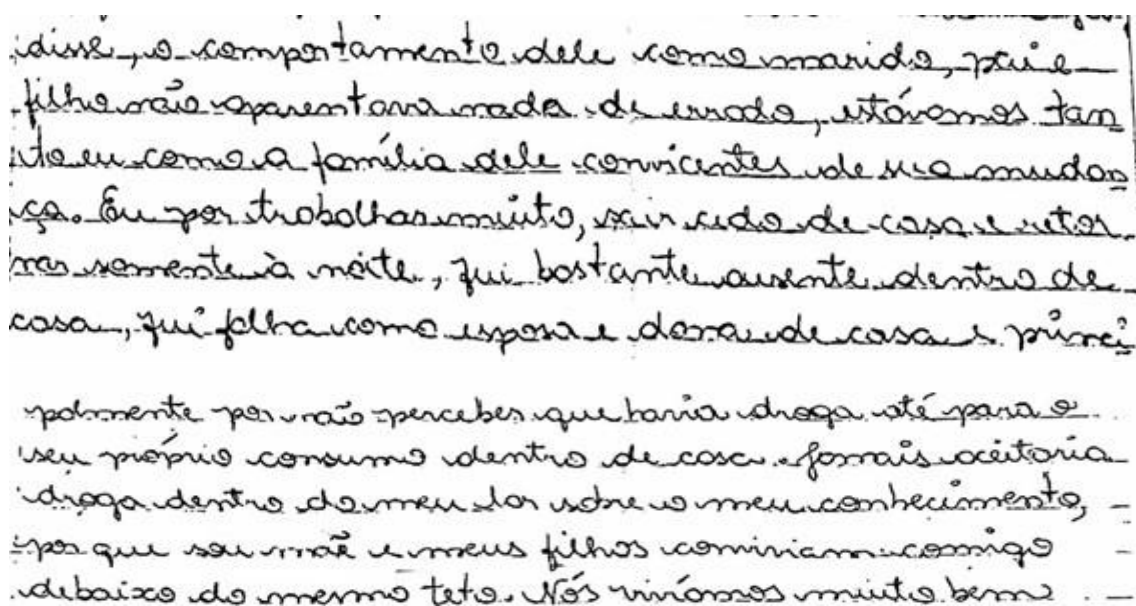 disse, o comportamento dele como marido, pai e
filho não aparentava nada de errado, estávamos tan
to eu como a família dele convicentes de sua mudan
ça. Eu por trabalhar muito, sair cedo de casa e retor
nar somente à noite, fui bastante ausente dentro de
casa, fui falha como esposa e dona de casa e princi
palmente por não perceber que havia droga até para o
seu próprio consumo dentro de casa. Jamais aceitaria
droga dentro do meu lar sobre o meu conhecimento,
por que sou mãe e meus filhos conviviam comigo
debaixo do mesmo teto. Nós vivíamos muito bem